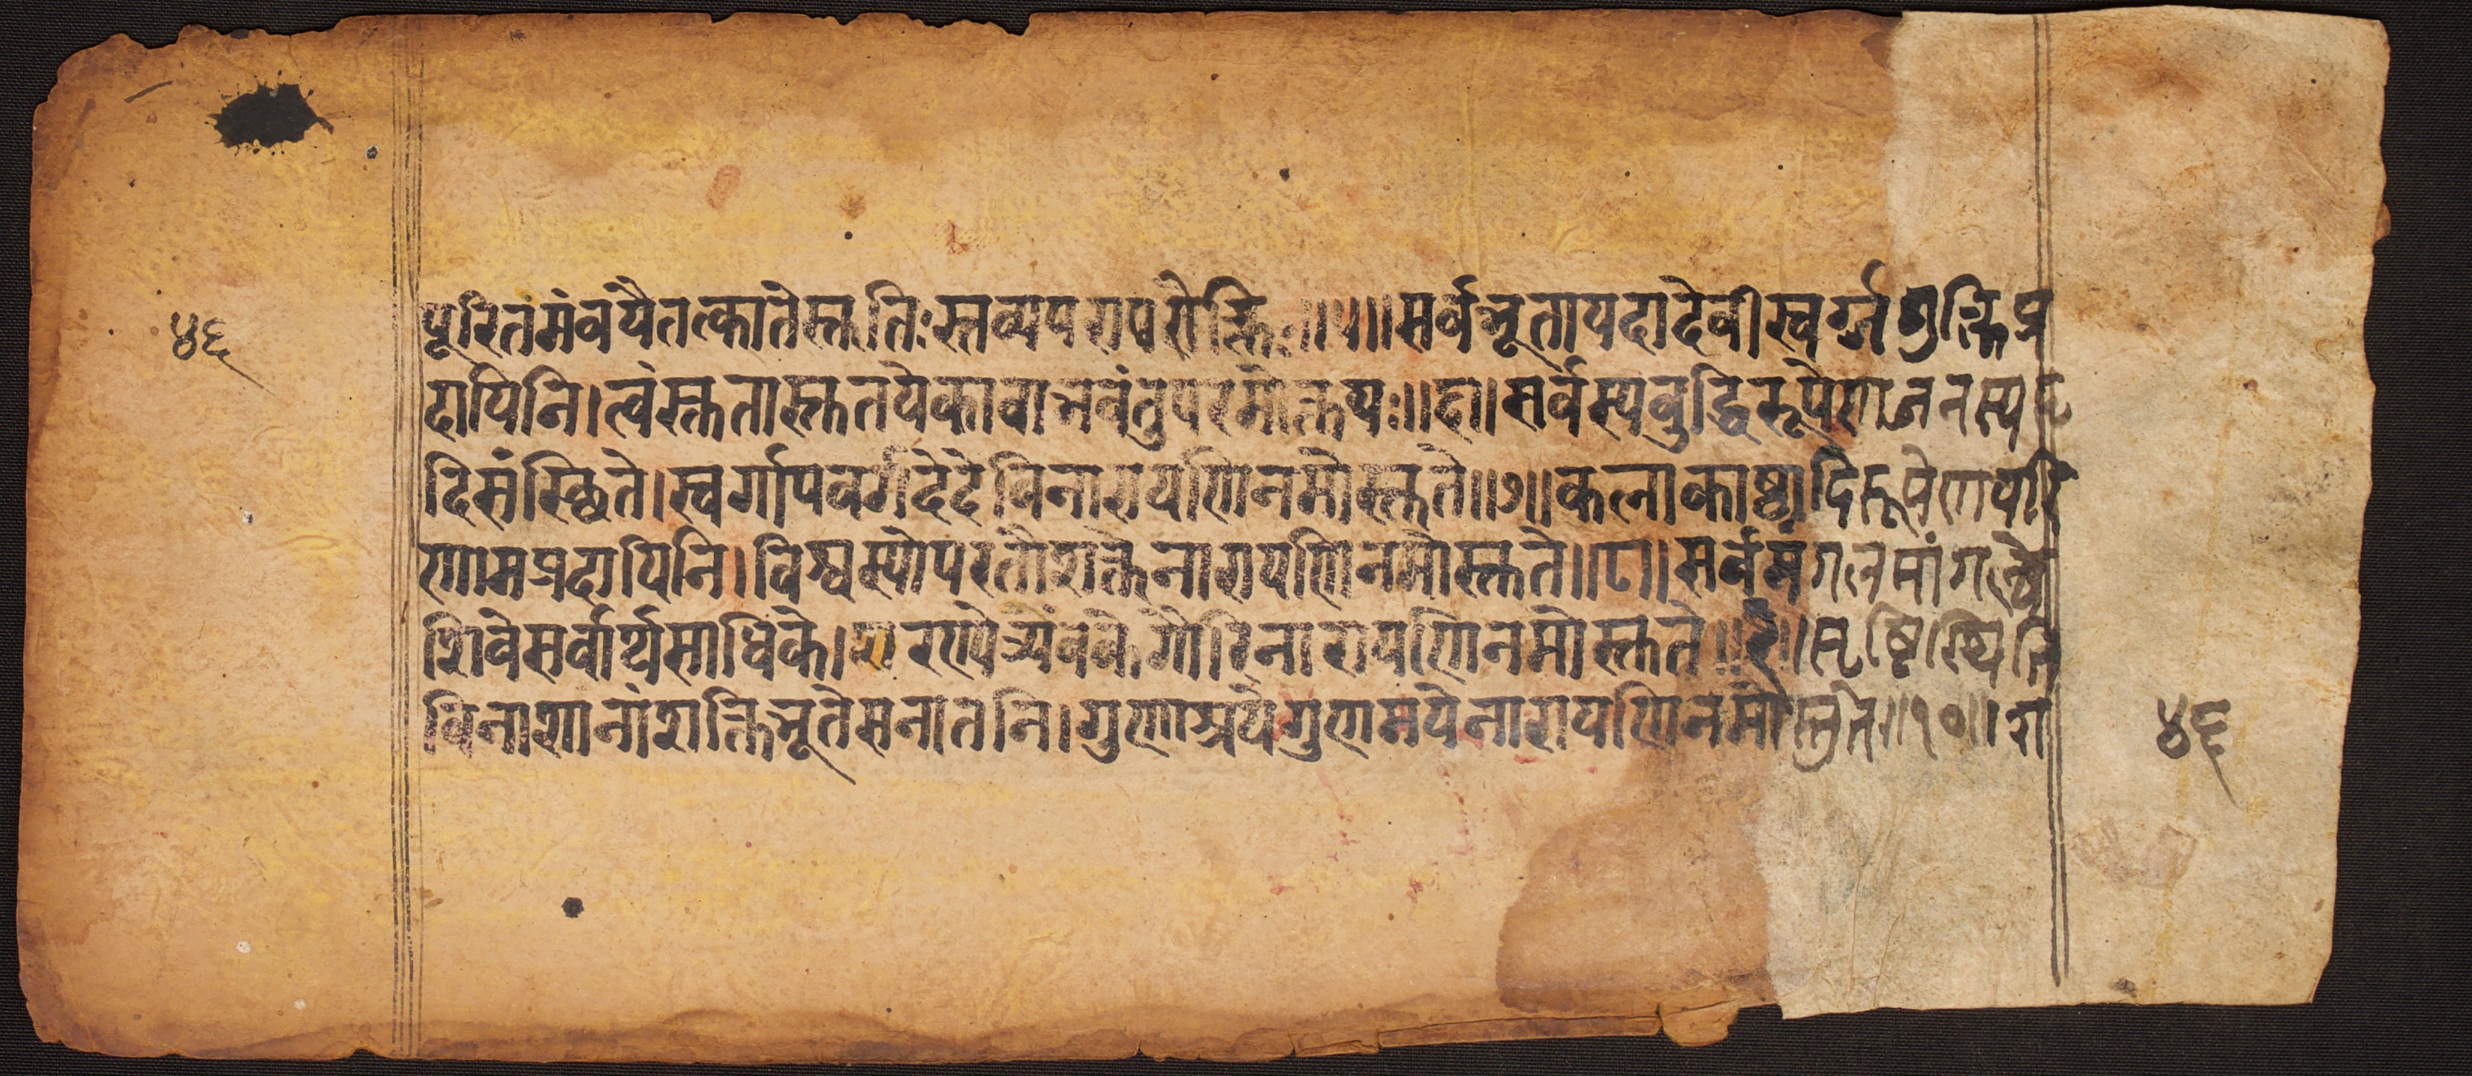 ४६
पूरितमंवयैतत्कातेस्तुतिःस्तव्यपरापरोक्तिः॥५॥सर्वभूतायदादेवीस्वर्गभुक्तिप्र
दायिनि।त्वंस्तुतास्तुतयेकावाभवंतुपरमोक्तयः॥६॥सर्वस्यबुद्धिरूपेणजनस्यहृ
दिसंस्थिते।स्वर्गापवर्गदेदेविनारायणिनमोस्तुते॥७॥कलाकाष्ठादिरूपेणपरि
णामप्रदायिनि।विश्वस्योपरतौशक्तेनारायणिनमोस्तुते॥८॥सर्वमंगलमांगल्ये
शिवेसर्वार्थसाधिके।शरण्येत्र्यंबकेगौरिनारायणिनमोस्तुते॥९॥सृष्टिस्थिति
विनाशानांशक्तिभूतेसनातनि।गुणाश्रयेगुणमयेनारायणिनमोस्तुते॥१०॥श
४६